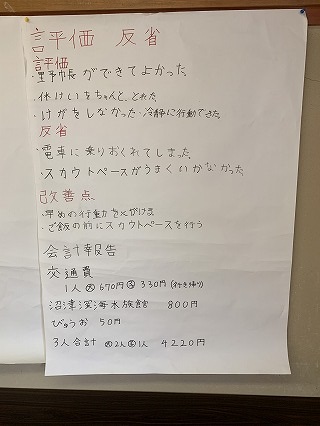 評価 反省
評価
・野帳ができてよかった
・休けいをちゃんと、とれた
・けがをしなかった・冷静に行動できた
反省
・電車に乗りおくれてしまった
・スカウトペースがうまくいかなかった
改善点
・早めの行動を心がける
・ご飯の前にスカウトペースを行う
会計報告
交通費
1人 大670円 小330円(行き帰り)
沼津深海水族館 800円
びゅうお 50円
3人合計 大2人小1人 4220円